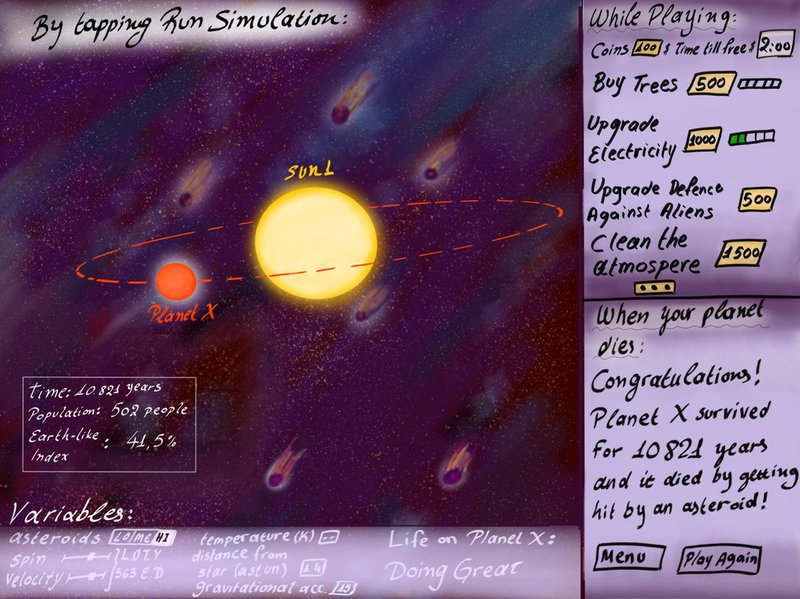 By tapping Run Simulation:
sun1
Planet X
Time: 10 821 years
Population: 502 people
Earth-like
Index : 41,5%
Variables:
asteroids LO/ME HI
spin 1 LOTY
velocity 563 E.D
temperature (K) --
distance from
star (ast.un) 1.4
gravitational acc. 15
Life on Planet X:
Doing Great
While Playing:
Coins 100 $ Time till free $ 2:00
Buy Trees 500
Upgrade
Electricity 1000
Upgrade Defence
Against Aliens 500
Clean the
atmospere 1500
...
When your planet
dies:
Congratulations!
Planet X survived
for 10 821 years
and it died by getting
hit by an asteroid!
Menu Play Again